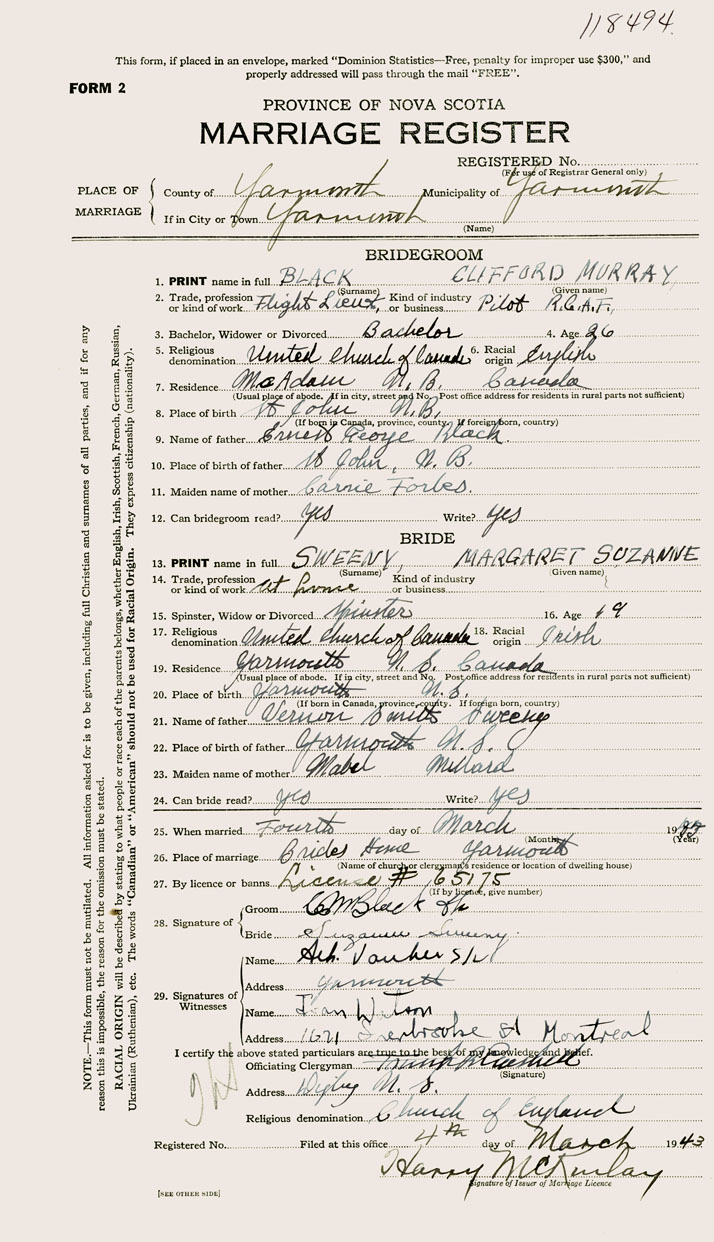 118494
This form, if placed in an envelope, marked "Dominion Statistics—Free, penalty for improper use $300," and
properly addressed will pass through the mail "FREE".
FORM 2
PROVINCE OF NOVA SCOTIA
MARRIAGE REGISTER
REGISTERED No.
(For use of Registrar General only)
PLACE OF MARRIAGE
County of Yarmouth Municipality of Yarmouth
If in City or Town Yarmouth
(Name)
BRIDEGROOM
1. PRINT name in full BLACK CLIFFORD MURRAY
(Surname) (Given name)
2. Trade, profession or kind of work Flight Lieut, Kind of industry or business Pilot R.C.A.F.
3. Bachelor, Widower or Divorced Bachelor 4. Age 26
5. Religious denomination United Church of Canada 6. Racial origin English
7. Residence McAdam N.B. Canada
(Usual place of abode. If in city, street and No. Post office address for residents in rural parts not sufficient)
8. Place of birth St John N.B.
(If born in Canada, province, county. If foreign born, country)
9. Name of father Ernest George Black.
10. Place of birth of father St John, N.B.
11. Maiden name of mother Carrie Forbes.
12. Can bridegroom read? yes Write? yes
BRIDE
13. PRINT name in full SWEENY, MARGARET SUZANNE
(Surname) (Given name)
14. Trade, profession or kind of work at home Kind of industry or business
15. Spinster, Widow or Divorced Spinster 16. Age 19
17. Religious denomination United Church of Canada 18. Racial origin Irish
19. Residence Yarmouth N.S. Canada
(Usual place of abode. If in city, street and No. Post office address for residents in rural parts not sufficient)
20. Place of birth Yarmouth N.S.
(If born in Canada, province, county. If foreign born, country)
21. Name of father Vernon Smith Sweeny
22. Place of birth of father Yarmouth N.S.
23. Maiden name of mother Mabel Millard
24. Can bride read? yes Write? yes
25. When married Fourth day of March 19
(Month) (Year)
26. Place of marriage Brides Home Yarmouth
(Name of church or clergyman's residence or location of dwelling house)
27. By licence or banns License # 65175
(If by licence, give number)
28. Signature of
Groom CM Black
Bride Suzanne Sweeny
29. Signatures of Witnesses
Name
Address Yarmouth
Name Watson
Address 1621 Sherbrooke St Montreal
I certify the above stated particulars are true to the best of my knowledge and belief.
Officiating Clergyman
(Signature)
Address Digby N.S.
Religious denomination Church of England
Registered No. Filed at this office 4th day of March 1943
Harry McKinlay
Signature of Issuer of Marriage Licence
[SEE OTHER SIDE]
NOTE.—This form must not be mutilated. All information asked for is to be given, including full Christian and surnames of all parties, and if for any
reason this is impossible, the reason for the omission must be stated.
RACIAL ORIGIN will be described by stating to what people or race each of the parents belongs, whether English, Irish, Scottish, French, German, Russian,
Ukrainian (Ruthenian), etc. The words "Canadian" or "American" should not be used for Racial Origin. They express citizenship (nationality).